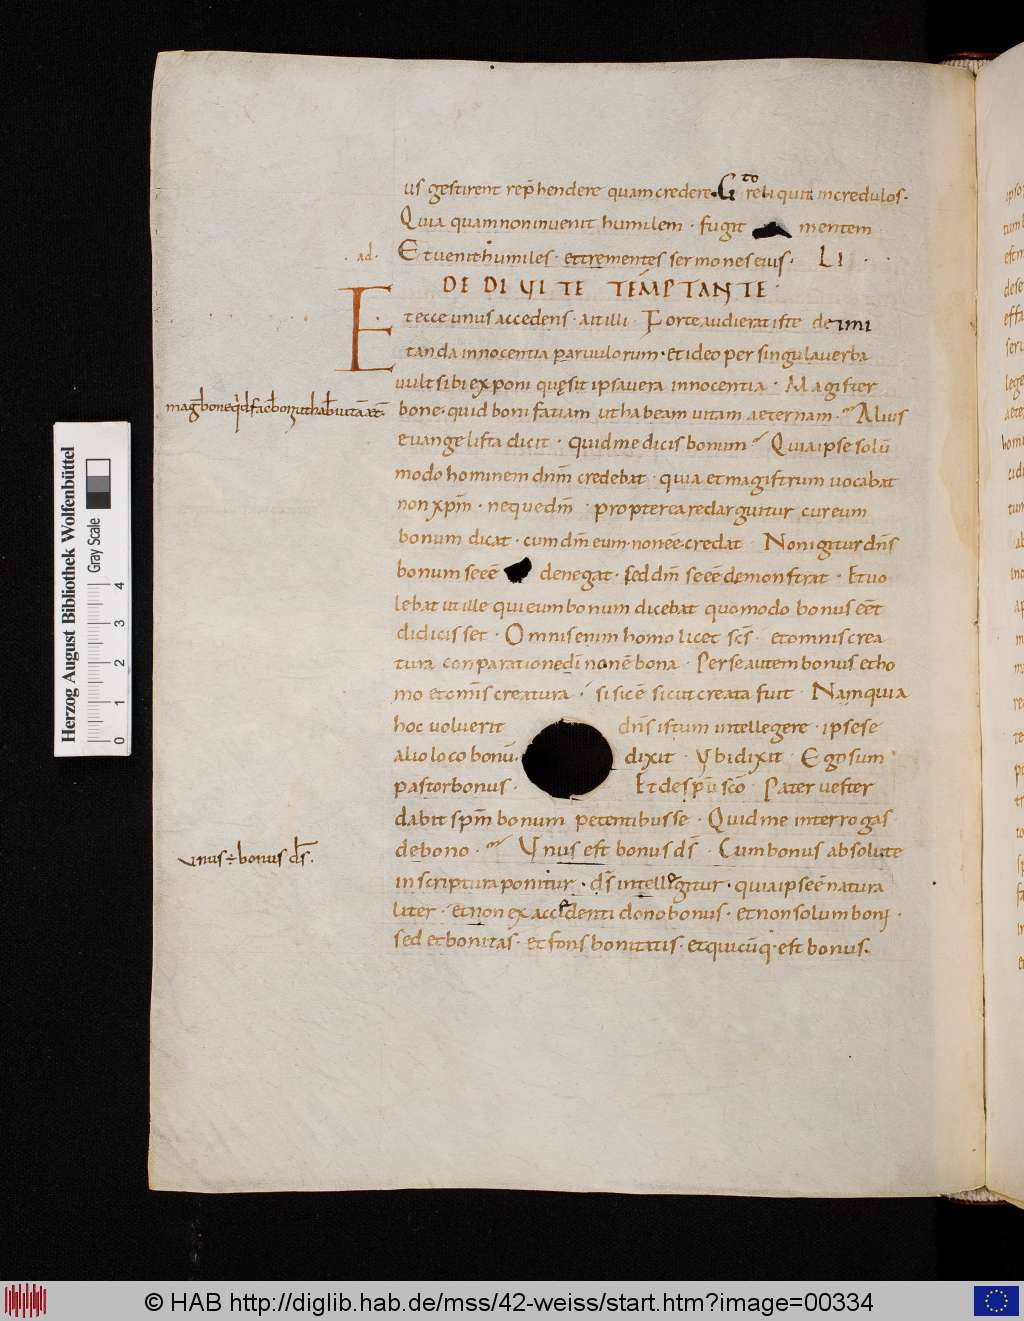 us gestirent rep̄hendere quam credere. Gto reliquit incredulos.
Quia quam non inuenit humilem · fugit mentem
· ad · Et uenit humiles · et trementes sermones eius · LI · ·
DE DIVITE TEMPTANTE ·
Et ecce unus accedens · ait illi · Forte audierat iste de imi
tanda innocentia paruulorum · et ideo per singula uerba
uult sibi exponi quęsit ipsa uera innocentia · Magister
bone · quid boni faciam ut habeam uitam aeternam · Alius
mag̅ bone qd fac̅ boni ut hab̅ uitā aet̅
euangelista dicit · quid me dicis bonum Quia ipse solū
modo hominem dnm̄ credebat · quia et magistrum uocabat
non xpm̄ · neque dm̄ · propterea redarguitur cur eum
bonum dicat · cum dm̄ eum · non eē · credat Non igitur dn̄s
bonum se eē denegat · sed dm̄ se eē demonstrat · Et uo
lebat ut ille qui eum bonum dicebat quomodo bonus eēt
didicisset · Omnis enim homo licet sc̄s · et omnis crea
tura conparatione di̅ non ē bona · Per se autem bonus et ho
mo et om̄s creatura · si sic ē sicut creata fuit · Nam quia
hoc uoluerit dn̄s istum intellegere · ipse se
alio loco bonū · dixit · Vbi dixit · Ego sum
pastor bonus · Et de spū sc̄o · Pater uester
dabit spm̄ bonum petentibus se · Quid me interrogas
de bono · Vnus est bonus ds̄ · Cum bonus absolute
unus ÷ bonus ds̄ ·
in scriptura ponitur · ds̄ intellegitur · quia ipse ē natura
liter · et non ex accedenti dono bonus · et non solum boni ·
sed et bonitas · et fons bonitatis · et quicūq · est bonus.
Herzog August Bibliothek Wolfenbüttel
Gray Scale
0 1 2 3 4
© HAB http://diglib.hab.de/mss/42-weiss/start.htm?image=00334